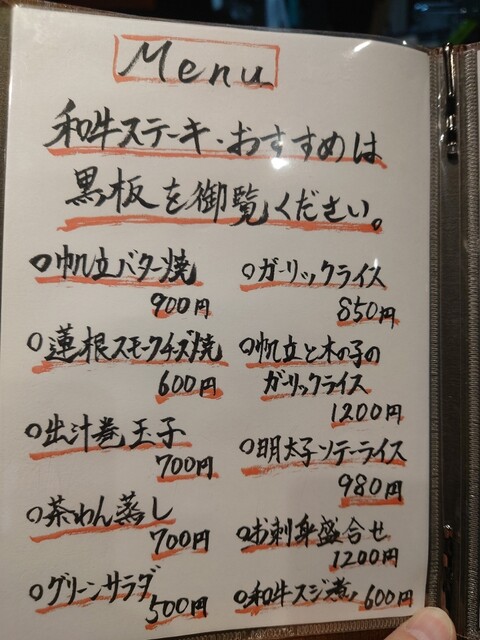 Menu
和牛ステーキ・おすすめは
黒板を御覧ください。
○帆立バター焼
900円
○蓮根スモークチーズ焼
600円
○出汁巻玉子
700円
○茶わん蒸し
700円
○グリーンサラダ
500円
○ガーリックライス
850円
○帆立と木の子の
ガーリックライス
1200円
○明太子ソテーライス
980円
○お刺身盛合せ
1200円
○和牛スジ煮
600円